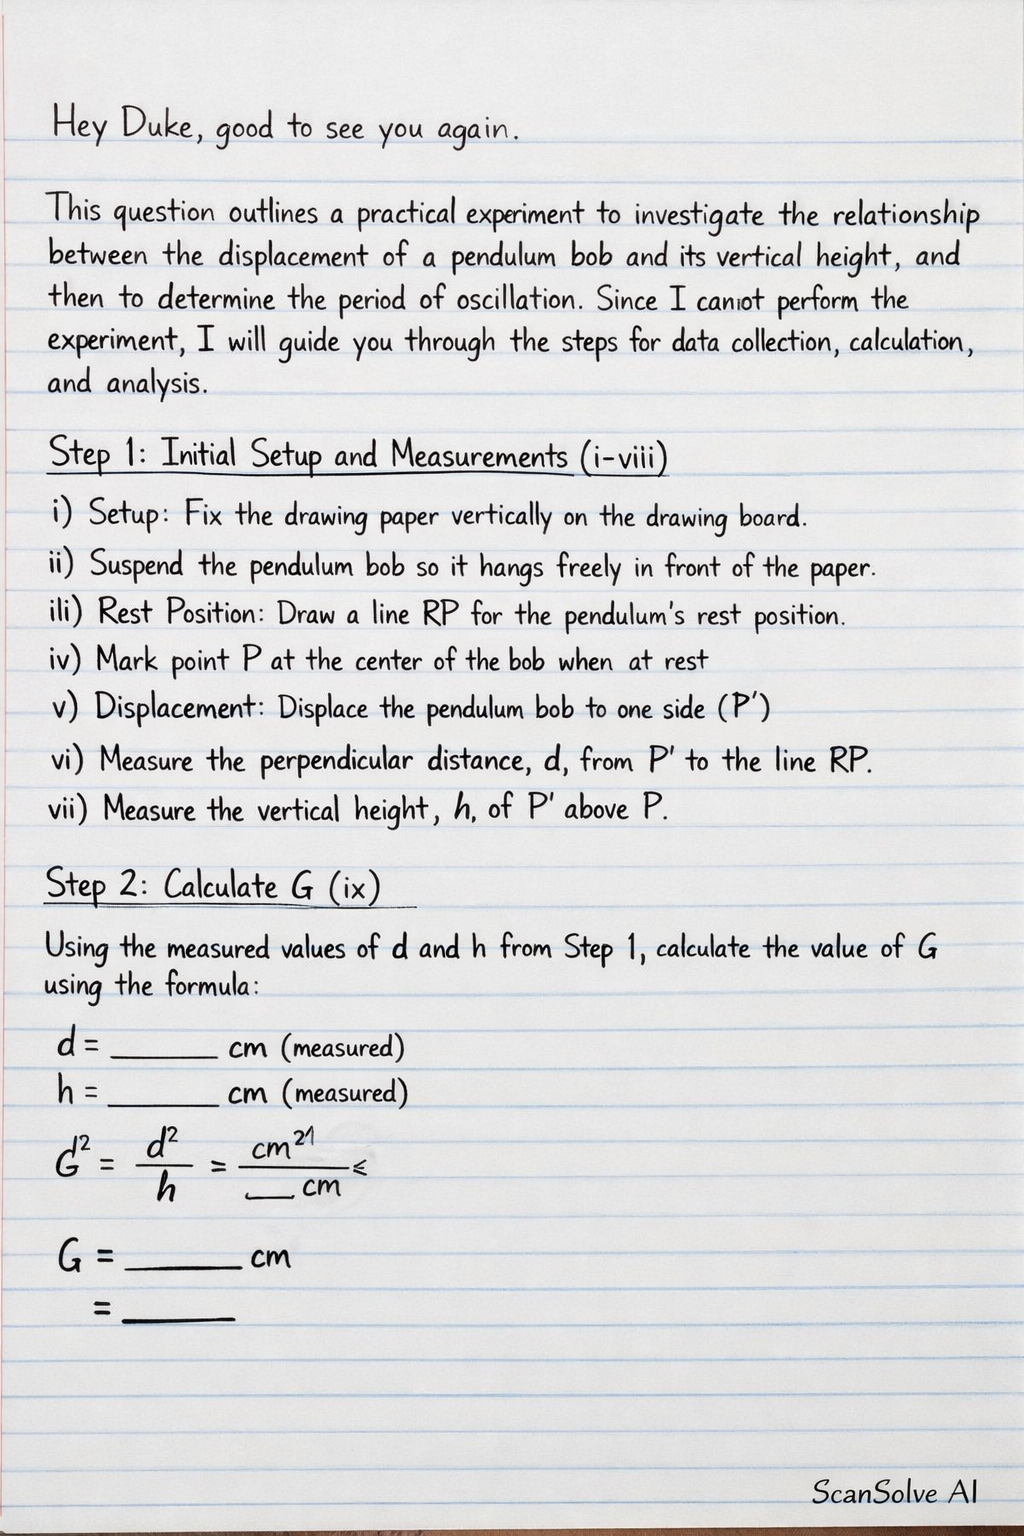 Hey Duke, good to see you again.
This question outlines a practical experiment to investigate the relationship
between the displacement of a pendulum bob and its vertical height, and
then to determine the period of oscillation. Since I cannot perform the
experiment, I will guide you through the steps for data collection, calculation,
and analysis.
Step 1: Initial Setup and Measurements (i-viii)
i) Setup: Fix the drawing paper vertically on the drawing board.
ii) Suspend the pendulum bob so it hangs freely in front of the paper.
ili) Rest Position: Draw a line RP for the pendulum's rest position.
iv) Mark point P at the center of the bob when at rest
v) Displacement: Displace the pendulum bob to one side (P')
vi) Measure the perpendicular distance, d, from P' to the line RP.
vii) Measure the vertical height, h, of P' above P.
Step 2: Calculate G (ix)
Using the measured values of d and h from Step 1, calculate the value of G
using the formula:
d = ______ cm (measured)
h = ______ cm (measured)
G = d² / h = cm² / __ cm
G = ______ cm
= ______
ScanSolve AI